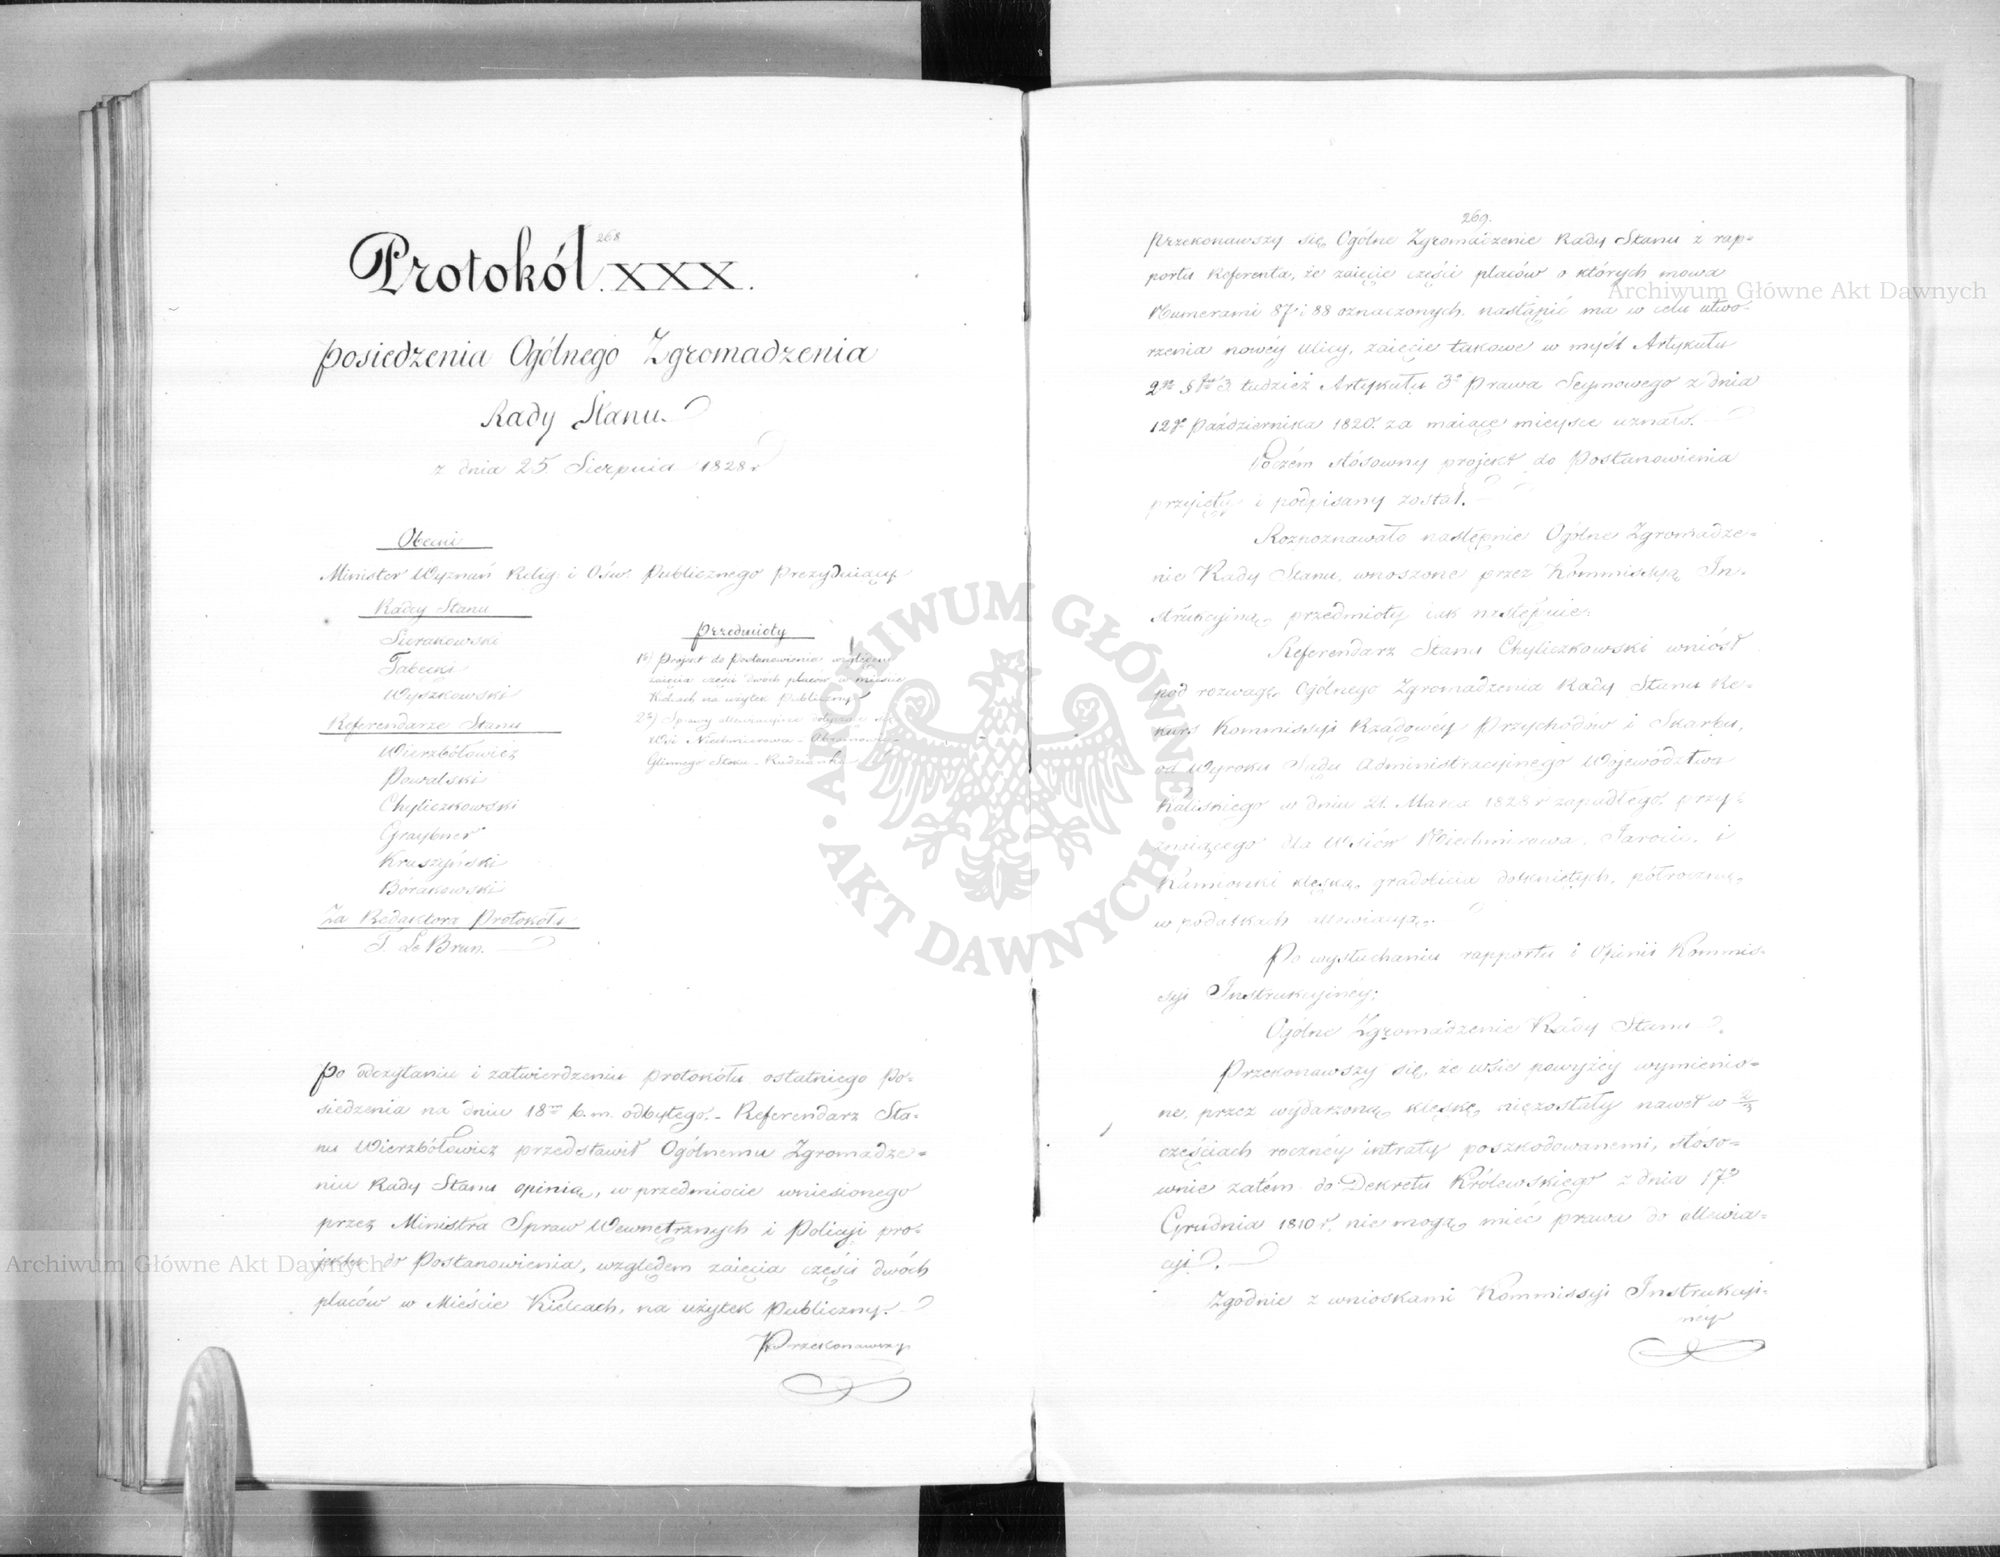 268
Protokół XXX.
Posiedzenia Ogólnego Zgromadzenia
Rady Stanu.
z dnia 25 Sierpnia 1828 r
Obecni
Minister Wyznań Relig: i Ośw. Publicznego Prezyduiący
Radcy Stanu
Sierakowski
Tabęcki
Wyszkowski
Referendarze Stanu
Wierzbołowicz
Powalski
Chyliczkowski
Graybner
Kruszyński
Borakowski
Za Redaktora Protokółu
T. Le Brun.
Przedmioty
1º) Projekt do Postanowienia względem
zaięcia części dwóch placów w mieście
Kielcach na użytek Publiczny
2º) Sprawy allewiacyjne dotyczące się
Wsi Niechmirowa - Abramowic -
Glinnego Stoku - Rudzienka
Po odczytaniu i zatwierdzeniu protokółu ostatniego Po-
siedzenia na dniu 18m b.m. odbytego. - Referendarz Sta-
nu Wierzbołowicz przedstawił Ogólnemu Zgromadze-
niu Rady Stanu opinią, w przedmiocie wniesionego
przez Ministra Spraw Wewnętrznych i Policyi pro-
jektu do Postanowienia, względem zaięcia części dwóch
placów w Mieście Kielcach, na użytek Publiczny.
Przekonawszy
269.
Przekonawszy się, Ogólne Zgromadzenie Rady Stanu z rap-
portu Referenta, że zaięcie części placów o których mowa
Numerami 87 i 88 oznaczonych, nastąpić ma w celu utwo-
rzenia nowéy ulicy, zaięcie takowe w myśl Artykułu
2go § 3 tudzież Artykułu 3º Prawa Seymowego z dnia
12go Października 1820 r. za maiące mieysce uznało.
Poczém stósowny projekt do Postanowienia
przyięty i podpisany został.
Rozpoznawało następnie Ogólne Zgromadze-
nie Rady Stanu, wnoszone przez Kommissyą In-
strukcyjną, przedmioty iak następnie:
Referendarz Stanu Chyliczkowski wniósł
pod rozwagę Ogólnego Zgromadzenia Rady Stanu Re-
kurs Kommissyi Rządowéy Przychodów i Skarbu,
od Wyroku Sądu Administracyjnego Województwa
Kaliskiego w dniu 21. Marca 1828 r zapadłego, przy-
znaiącego dla Wsiów Niechmirowa, Jarocic, i
Kamionki klęską gradobicia dotkniętych, półroczną
w podatkach allewiacyą.
Po wysłuchaniu rapportu i Opinii Kommis-
syi Instrukcyjnéy;
Ogólne Zgromadzenie Rady Stanu.
Przekonawszy się, że wsie powyżéy wymienio-
ne, przez wydarzoną klęskę niezostały nawet w 2/3
częściach rocznéy intraty poszkodowanemi, stóso-
wnie zatém do Dekretu Królewskiego z dnia 17º
Grudnia 1810 r. nie mogą mieć prawa do allewia-
cyi.
Zgodnie z wnioskami Kommissyi Instrukcyi-
néy
Archiwum Główne Akt Dawnych
Archiwum Główne Akt Dawnych
ARCHIWUM GŁÓWNE AKT DAWNYCH